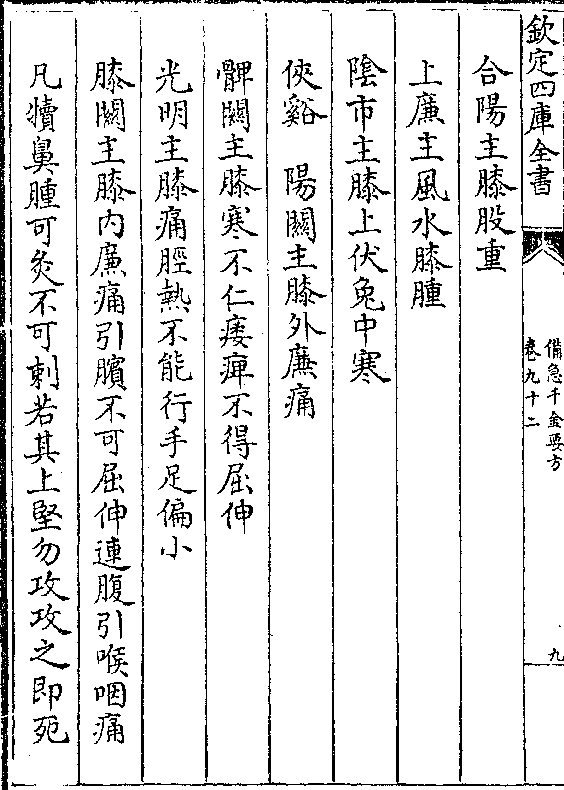 欽定四庫全書
備急千金要方
卷九十二
九
合陽主膝股重
上廉主風水膝腫
陰市主膝上伏兔中寒
俠谿　陽關主膝外廉痛
髀關主膝寒不仁痿痺不得屈伸
光明主膝痛脛熱不能行手足偏小
膝關主膝內廉痛引臏不可屈伸連腹引喉咽痛
凡犢鼻腫可灸不可刺若其上堅勿攻攻之即死